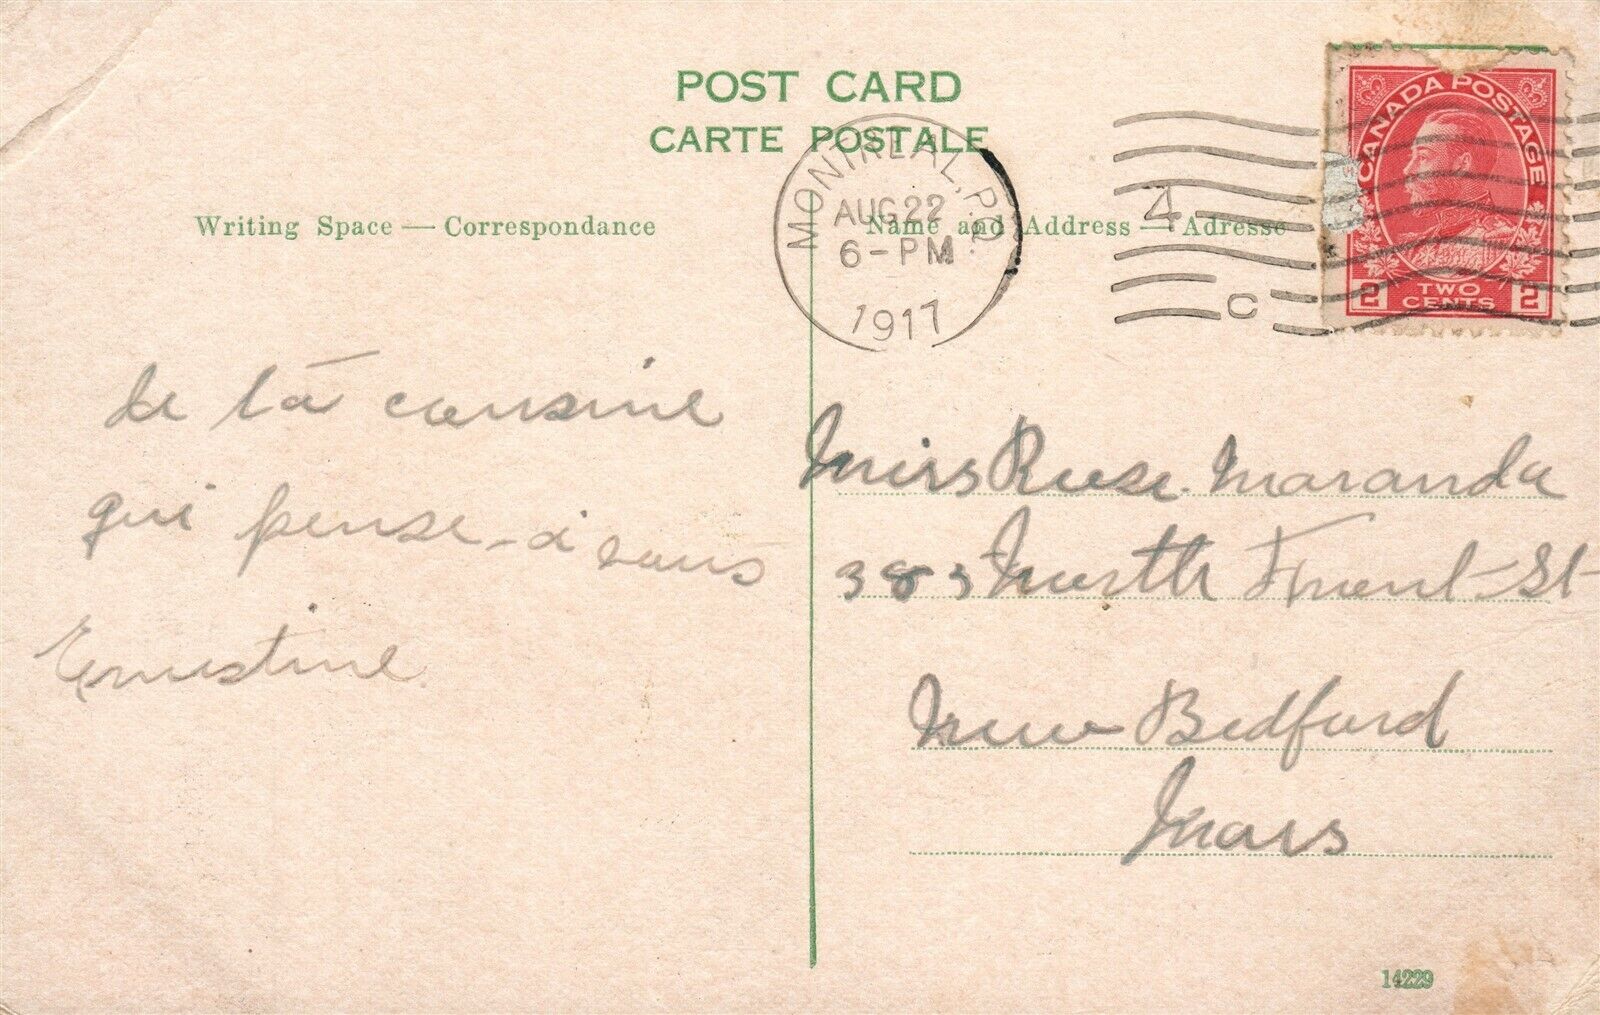 POST CARD
CARTE POSTALE
Writing Space — Correspondance
Name and Address — Adresse
MONTREAL, P.Q.
AUG 22
6 - PM
1917
4
C
CANADA POSTAGE
2 TWO CENTS 2
de ta cousine
qui pense-à vous
Ernestine
Miss Rose Maranda
383 North Front St
New Bedford
Mass
14229